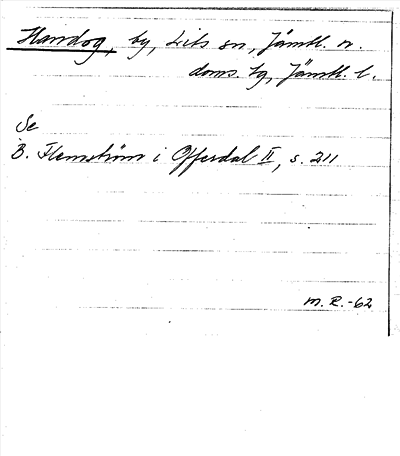 Handog, by, Lits sn, Jämtl. n.
doms. by, Jämtl. l.
Se
B. Flemström i Offerdal II, s. 211
M.R.-62